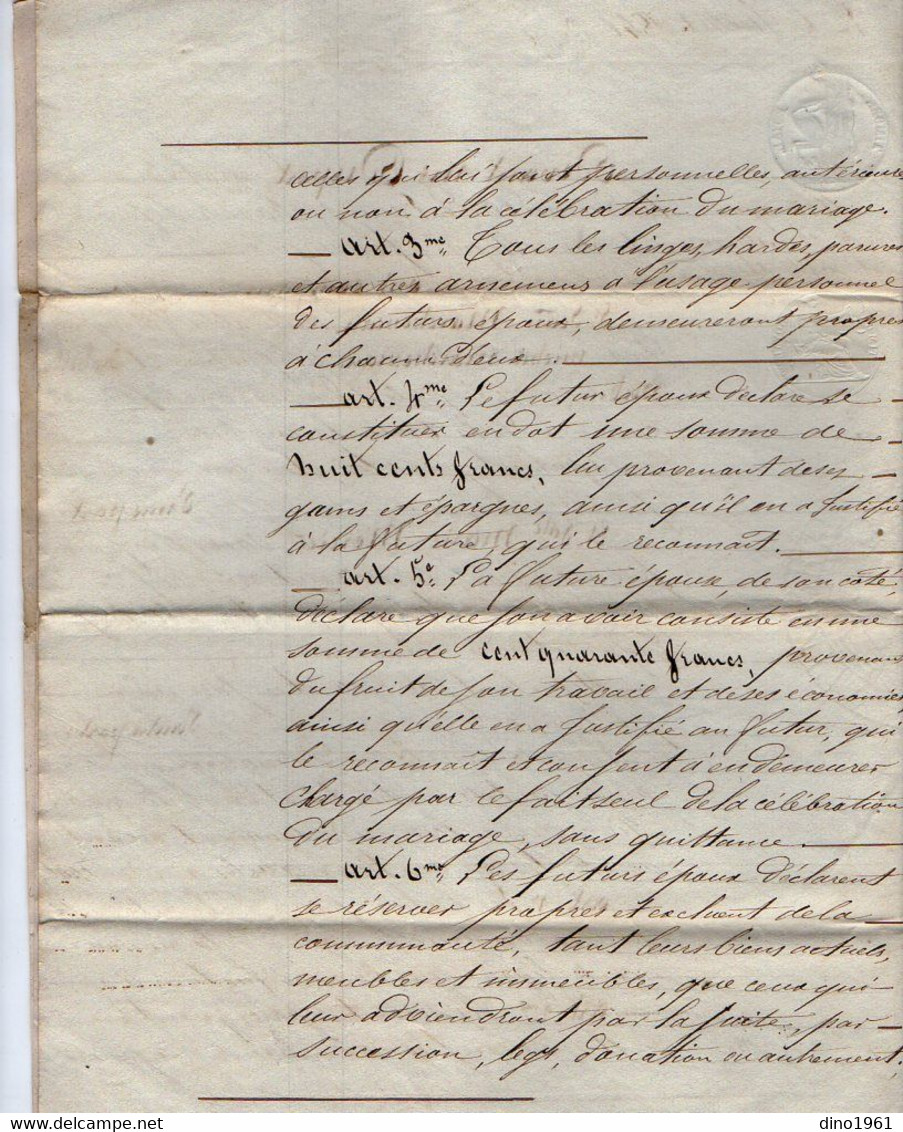 celles qui lui sont personnelles, antérieures
ou non à la célébration du mariage.
— art. 3me. Tous les linges, hardes, parures
et autres ornemens à l'usage personnel
des futurs époux, demeureront propres
à chacun d'eux.
— art. 4me. Le futur époux déclare se
constituer en dot une somme de
huit cents francs, lui provenant de ses
gains et épargnes, ainsi qu'il en a justifié
à la future, qui le reconnait.
— art. 5e. La future épouse, de son coté,
déclare que son avoir consiste en une
somme de cent quarante francs, provenant
du fruit de son travail et de ses économies,
ainsi qu'elle en a justifié au futur, qui
le reconnait et consent à en demeurer
chargé par le fait seul de la célébration
du mariage, sans quittance.
— art. 6me. Les futurs époux déclarent
se réserver propres et excluent de la
communauté, tant leurs biens actuels,
meubles et immeubles, que ceux qui
leur adviendront par la suite, par
succession, legs, donation ou autrement;
delcampe.net
dino1961